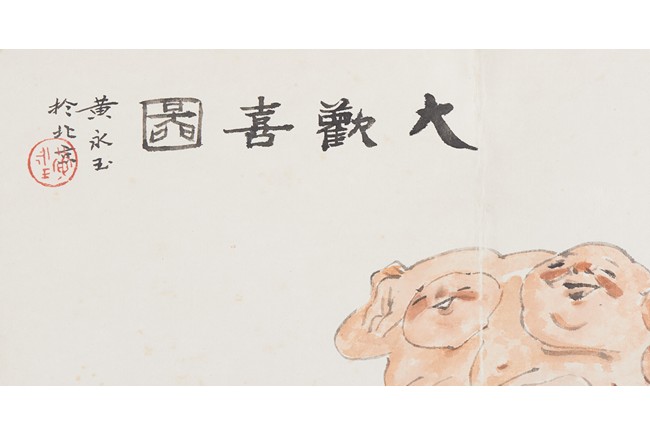 大歡喜圖
黃永玉
於北京